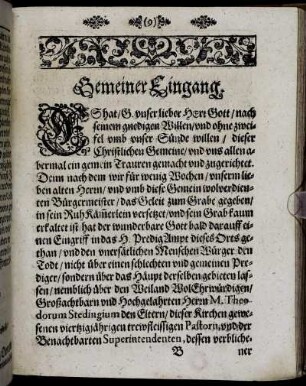 (o)
Gemeiner Eingang.
ES hat / G. vnser lieber Herr Gott / nach
seinem gnedigen Willen / vnd ohne zwei-
fel vmb vnser Sünde willen / dieser
Christlichen Gemeine / vnd uns allen a-
bermal ein gemein Trauren gemacht vnd zugerichtet.
Denn nach dem wir für wenig Wochen / vnserm lie-
ben alten Herrn / vnd vmb diese Gemein wolverdien-
ten Bürgemeister / das Geleit zum Grabe gegeben /
in sein Ruh Kämerlein versetzet / vnd sein Grab kaum
erkaltet ist hat der wunderbare Gott bald darauff ei-
nen Eingriff in das H. Predig Ampt dieses Orts ge-
than / vnd den vnersätlichen Menschen Würger den
Todt / nicht über einen schlechten vnd gemeinen Pre-
diger / sondern über das Häupt derselben gebieten las-
sen / nemblich über den Weiland Wol Ehrwürdigen /
Großachtbarn vnd Hochgelahrten Herrn M. Theo-
dorum Stedingium den Eltern / dieser Kirchen gewe-
senen viertzigjährigen trewfleissigen Pastorn, vnd der
Benachtbarten Superintendenten, dessen verbliche-
B
ner